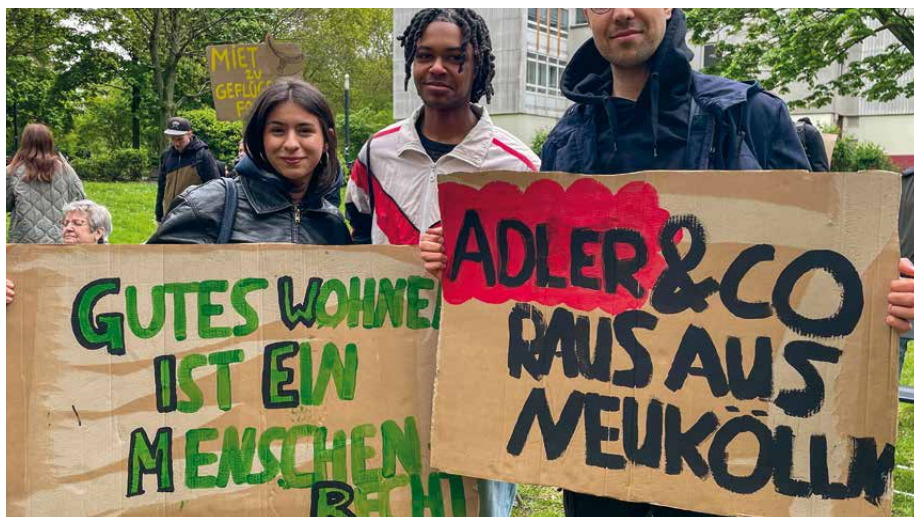 MIET
ZU
GUTES WOHNE
IST EIN
MENSCHEN
RECHT
ADLER & CO
RAUS AUS
NEUKÖLLN